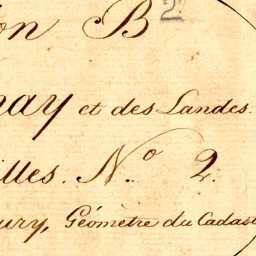 on B 2
nay et des Landes.
illes. N.º 2.
ury, Géomètre du Cadast